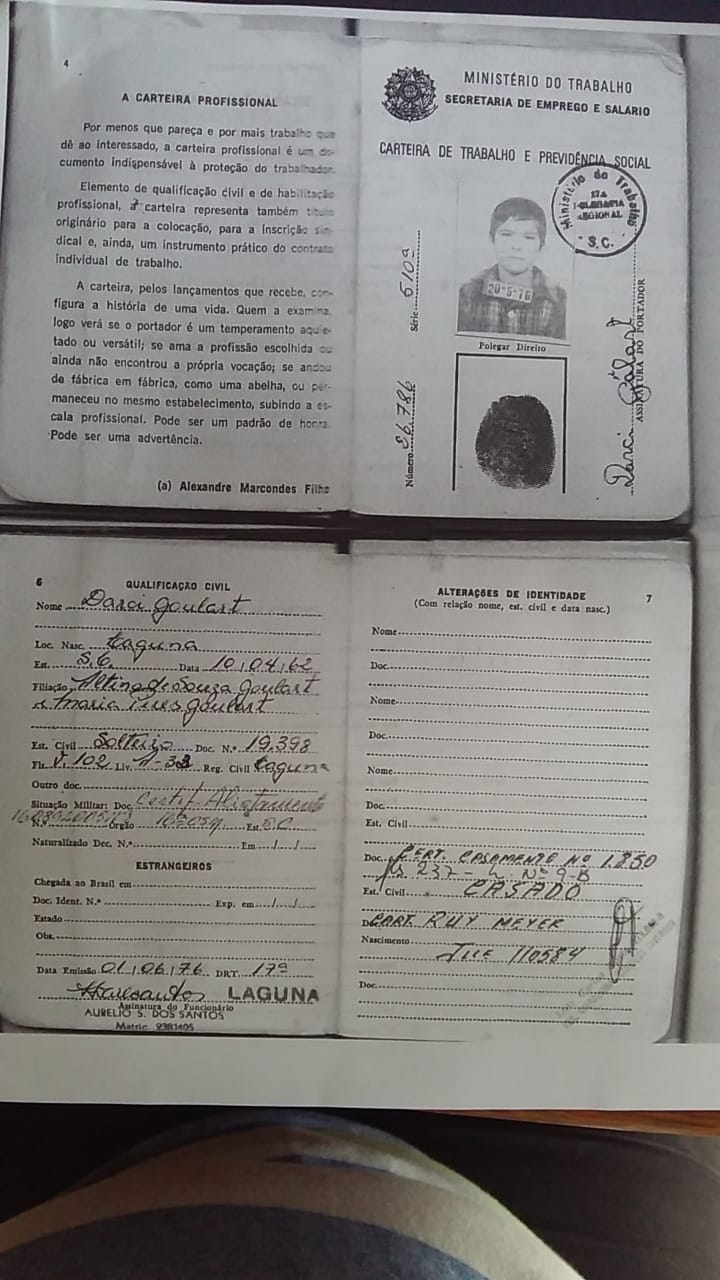 4
A CARTEIRA PROFISSIONAL
Por menos que pareça e por mais trabalho que
dê ao interessado, a carteira profissional é um do-
cumento indispensável à proteção do trabalhador.
Elemento de qualificação civil e de habilitação
profissional, a carteira representa também título
originário para a colocação, para a inscrição sin-
dical e, ainda, um instrumento prático do contrato
individual de trabalho.
A carteira, pelos lançamentos que recebe, con-
figura a história de uma vida. Quem a examina,
logo verá se o portador é um temperamento aquie-
tado ou versátil; se ama a profissão escolhida ou
ainda não encontrou a própria vocação; se andou
de fábrica em fábrica, como uma abelha, ou per-
maneceu no mesmo estabelecimento, subindo a es-
cala profissional. Pode ser um padrão de honra.
Pode ser uma advertência.
(a) Alexandre Marcondes Filho
MINISTÉRIO DO TRABALHO
SECRETARIA DE EMPREGO E SALÁRIO
CARTEIRA DE TRABALHO E PREVIDÊNCIA SOCIAL
Ministério do Trabalho
REGIONAL
S.C.
20-5-76
Polegar Direito
Número 86.786 Série 510ª
Darci Goulart
ASSINATURA DO PORTADOR
6
QUALIFICAÇÃO CIVIL
Nome Darci Goulart
Loc. Nasc. Laguna
Est. S.C. Data 10/04/62
Filiação Altino de Souza Goulart
e Maria Pires Goulart
Est. Civil Solteiro Doc. N.º 19.398
Fls. V.102 Liv. Reg. Civil Laguna
Outro doc.
Situação Militar: Doc. Certif. Alistamento
N.º Órgão Est. S.C.
Naturalizado Dec. N.º Em / /
ESTRANGEIROS
Chegada ao Brasil em
Doc. Ident. N.º Exp. em / /
Estado
Obs.
Data Emissão 01/06/76 DRT. 17ª
LAGUNA
Assinatura do Funcionário
AURELIO S. DOS SANTOS
Matric. 9381405
7
ALTERAÇÕES DE IDENTIDADE
(Com relação nome, est. civil e data nasc.)
Nome
Doc.
Nome
Doc.
Nome
Doc.
Est. Civil
Doc. CERT. CASAMENTO Nº 1.850
fls 237 - L. Nº 9-B
Est. Civil CASADO
Doc. CART. RUY MEYER
Nascimento
110584
Doc.